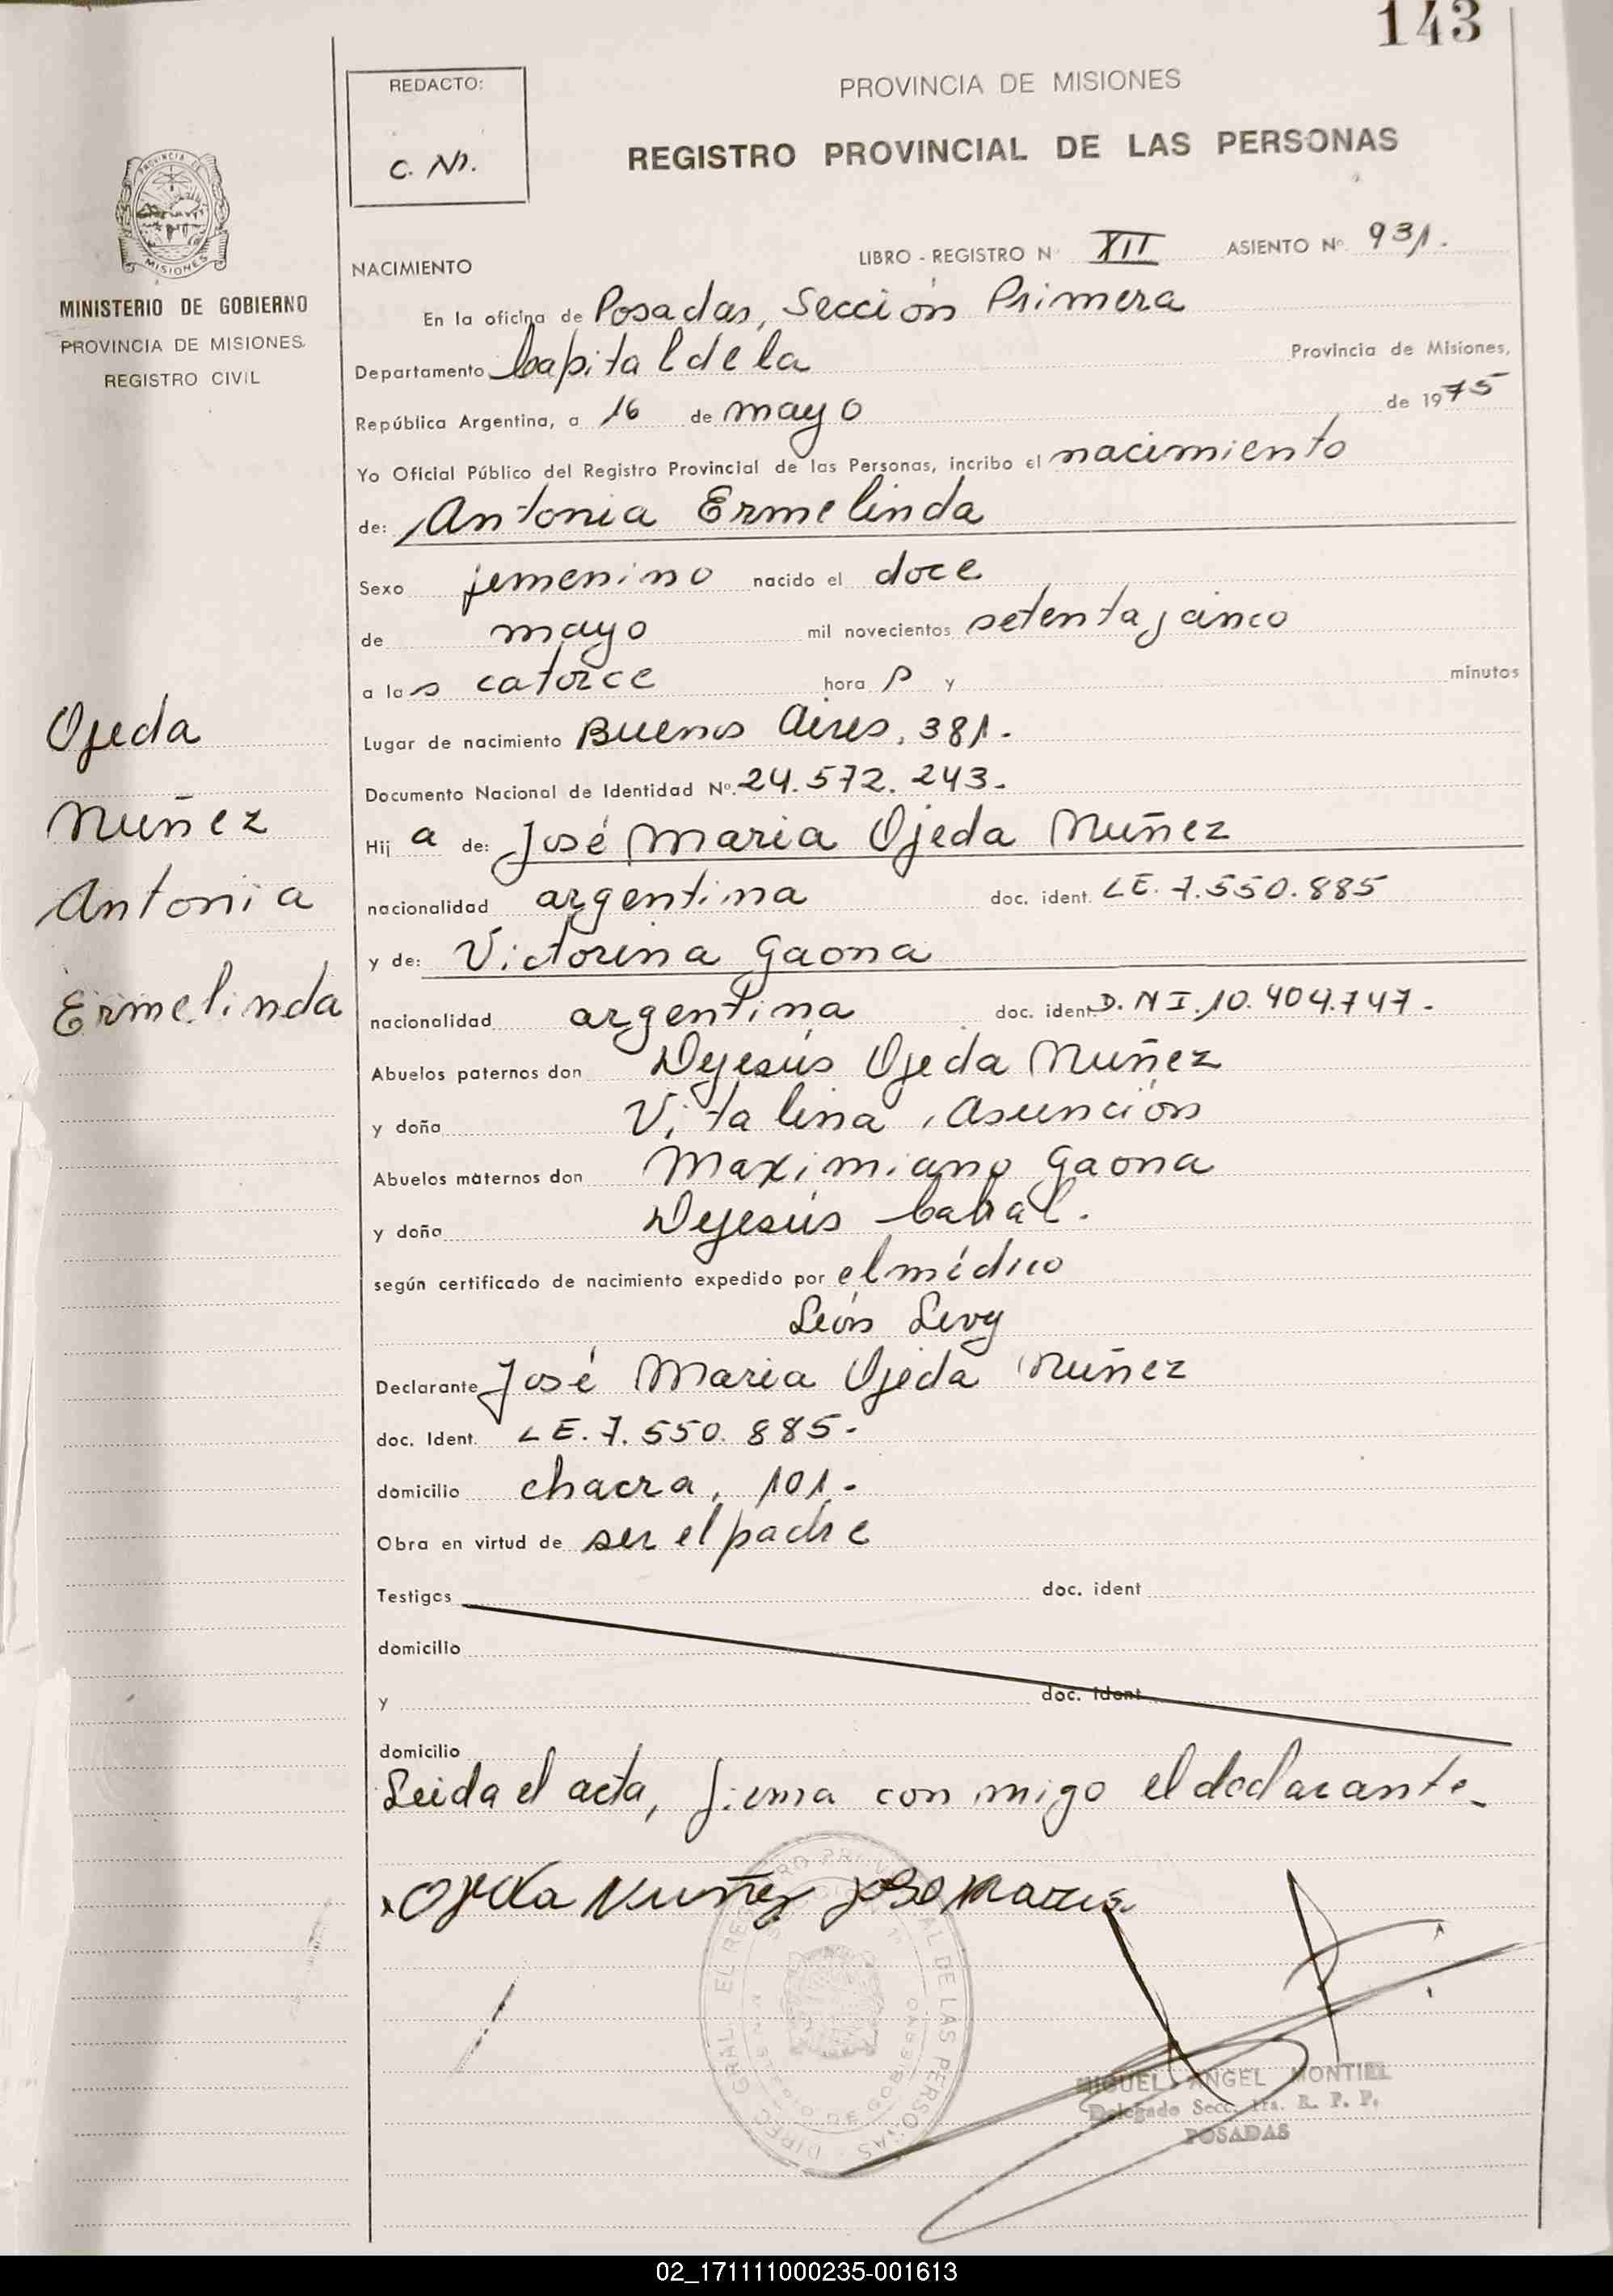 143
REDACTO:
C. N.
PROVINCIA DE MISIONES
REGISTRO PROVINCIAL DE LAS PERSONAS
MISIONES
MINISTERIO DE GOBIERNO
PROVINCIA DE MISIONES
REGISTRO CIVIL
NACIMIENTO LIBRO - REGISTRO N° XII ASIENTO N° 931.
En la oficina de Posadas, Sección Primera
Departamento Capital de la Provincia de Misiones,
República Argentina, a 16 de mayo de 1975
Yo Oficial Público del Registro Provincial de las Personas, incribo el nacimiento
de: Antonia Ermelinda
Sexo femenino nacido el doce
de mayo mil novecientos setenta y cinco
a las catorce hora s y minutos
Lugar de nacimiento Buenos Aires, 381.
Documento Nacional de Identidad N° 24.572.243.
Hij a de: José Maria Ojeda Nuñez
nacionalidad argentina doc. ident. LE. 7.550.885
y de: Victorina Gaona
nacionalidad argentina doc. ident D. N I. 10.404.747.
Abuelos paternos don Dejesús Ojeda Nuñez
y doña Vitalina, Asunción
Abuelos maternos don Maximiano Gaona
y doña Dejesús Cabral.
según certificado de nacimiento expedido por el médico
León Levy
Declarante José Maria Ojeda Nuñez
doc. Ident. LE. 7.550.885.
domicilio chacra, 101.
Obra en virtud de ser el padre
Testigos doc. ident
domicilio
y doc. ident
domicilio
Leida el acta, firma con migo el declarante
Ojeda Nuñez Jose Maria
Ojeda
Nuñez
Antonia
Ermelinda
MIGUEL ANGEL MONTIEL
Delegado Secc. 1ra. R. P. P.
POSADAS
02_171111000235-001613